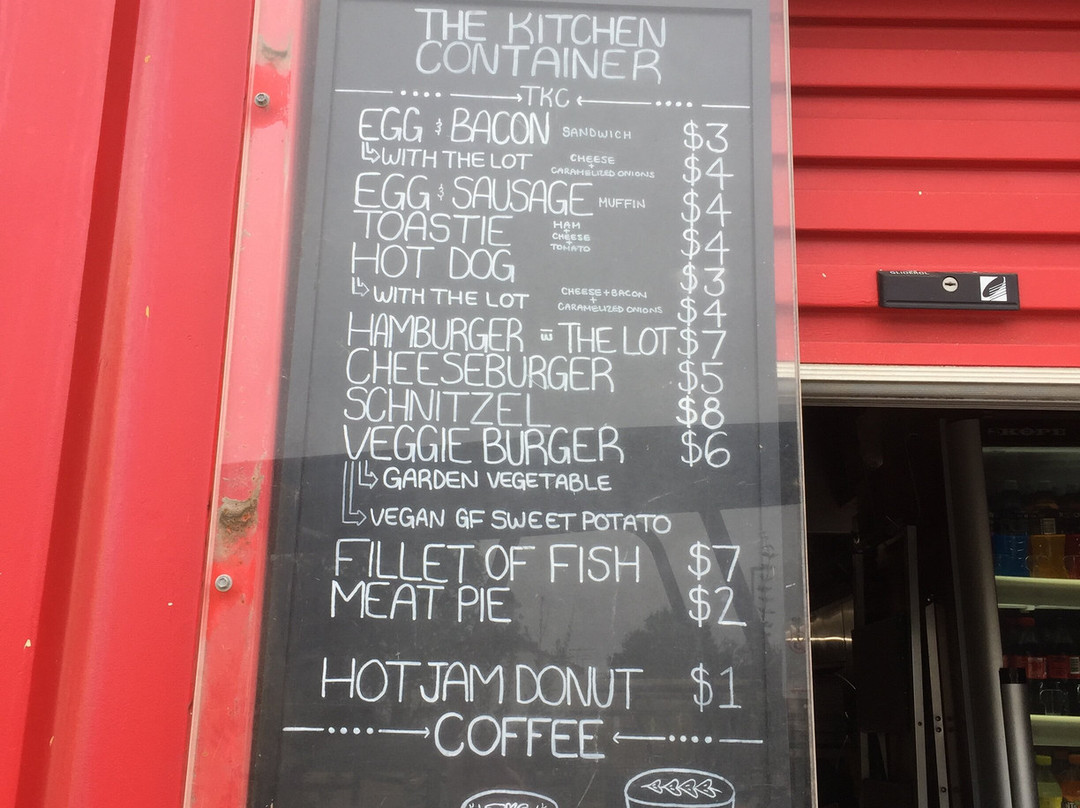 THE KITCHEN
CONTAINER
TKC
EGG & BACON SANDWICH $3
WITH THE LOT CHEESE + CARAMELIZED ONIONS $4
EGG & SAUSAGE MUFFIN $4
TOASTIE HAM + CHEESE + TOMATO $4
HOT DOG $3
WITH THE LOT CHEESE + BACON + CARAMELIZED ONIONS $4
HAMBURGER THE LOT $7
CHEESEBURGER $5
SCHNITZEL $8
VEGGIE BURGER $6
GARDEN VEGETABLE
VEGAN GF SWEET POTATO
FILLET OF FISH $7
MEAT PIE $2
HOT JAM DONUT $1
COFFEE